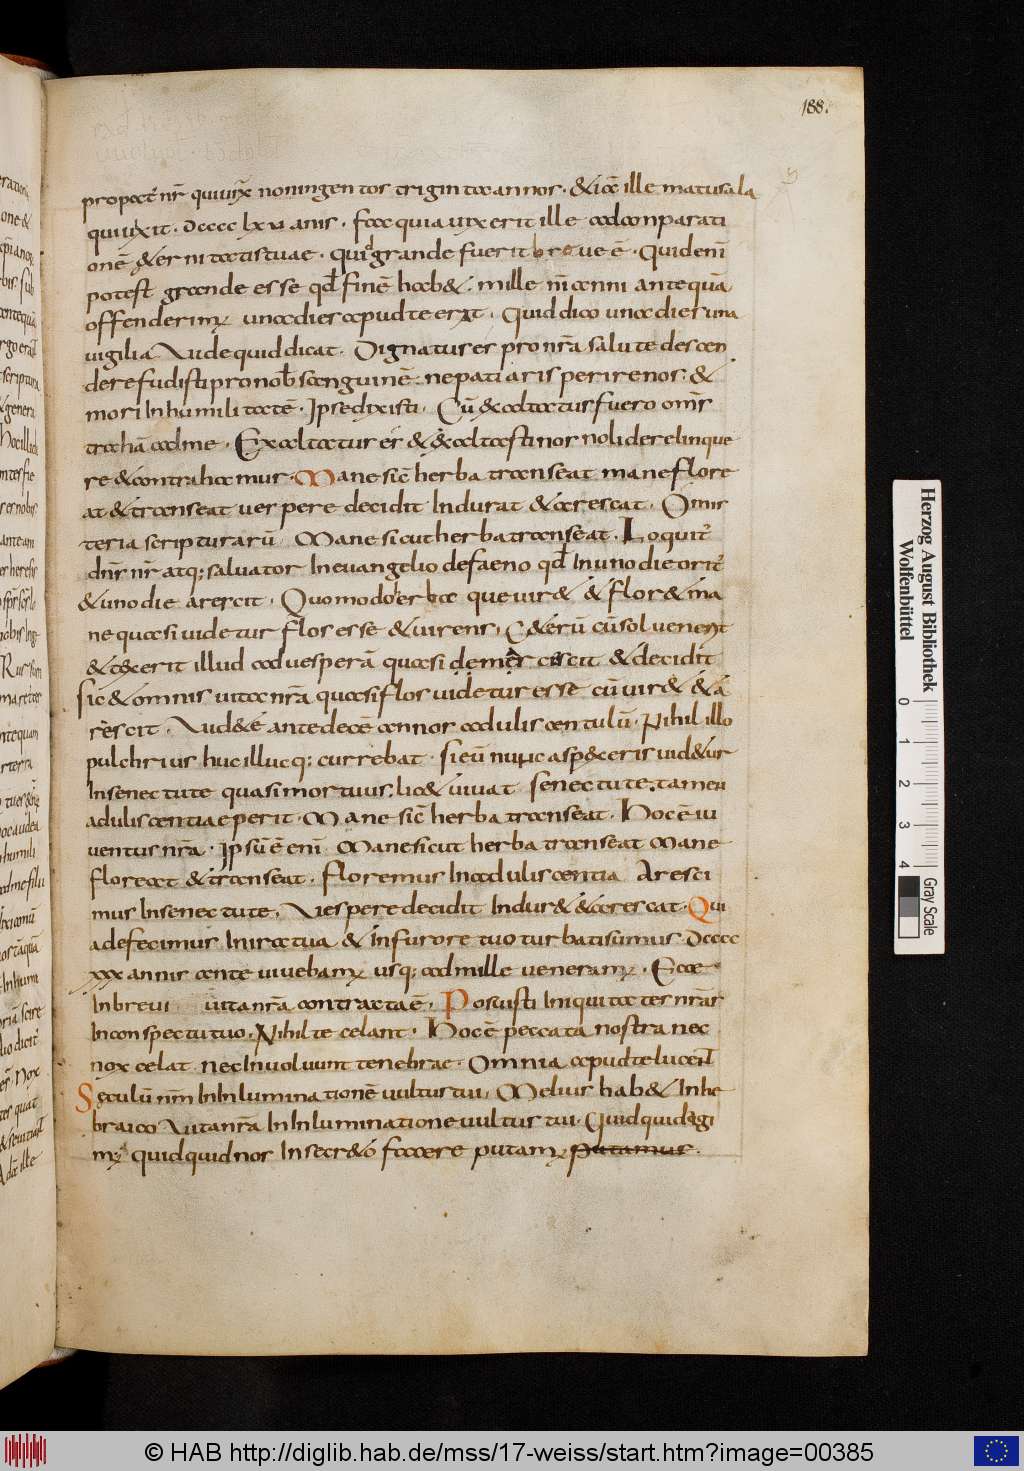 188.
propat̄ nr̄ qui uix̄ noningentos triginta annos· & iā ille matusala
qui uixit· dcccc lxvi anis· fac quia uixerit ille ad conparati
onē &ernitatis tuae· Quid grande fuerit breue ē· Quid enī
potest grande esse qd̄ finē hab&· mille nī anni antequā
offenderimꝰ una dies apud te erat· Quid dico una dies una
uigilia Uide quid dicat· Dignatus es pro nr̄a salute descen
dere fudisti pro nob̄ sanguinē· ne patiaris perire nos· &
mori In humilitatē· Ipse dixisti· Cū &altatus fuero om̄s
trahā ad me· Exaltatus es & &altasti nos noli derelinque
re & contrahamur· Mane sic̄ herba transeat mane flore
at & transeat uespere decidit Indurat & arescat· Omis
teria scripturarū· Mane sicut herba transeat· Loquit᷒
dn̄s nr̄ atq; saluator In euangelio de faeno qd̄ In uno die orit᷒
& uno die arescit· Quomodo herba que uir& & flor& ma
ne quasi uidetur flos esse & uirens· C&erū cū sol uenerit
& c&cerit illud ad uesperā quasi demer ciscit & decidit
sic̄ & omnis uita nr̄a quasi flos uidetur esse cū uir& & a
rescit· Uid&e ante decē annos aduliscentulū· Nihil illo
pulchrius huc illucq; currebat· si eū nunc aspexeris uid&ur
In senectute quasi mortuus· lic& uiuat senectute· tamen
aduliscentiae perit· Mane sic̄ herba transeat· Hoc ē iu
uentus nr̄a· Ipsū ē enī Mane sicut herba transeat Mane
floreat & transeat· floremus In aduliscentia Aresci
mus In senectute· Uespere decidit Indur& & arescat· Qui
a defecimus In ira tua & In furore tuo turbati sumus· Dcccc
xxx annis ante uiuebamꝰ usq; ad mille ueneramꝰ· Ecce
In breui uita nr̄a contracta ē· Posuisti Iniquitates nr̄as
In conspectu tuo· Nihil te celant· Hoc ē peccata nostra nec
nox celat nec Inuoluunt tenebrae· Omnia apud te lucen̄t
Sęculū nr̄m In Inluminationē uultus tui· Melius hab& In he
braico Uita nr̄a In Inluminatione uultus tui· Quidquid egi
mꝰ quidquid nos In secr&o facere putamꝰ putamus·
Herzog August Bibliothek
Wolfenbüttel
0 1 2 3 4
Gray Scale
© HAB http://diglib.hab.de/mss/17-weiss/start.htm?image=00385